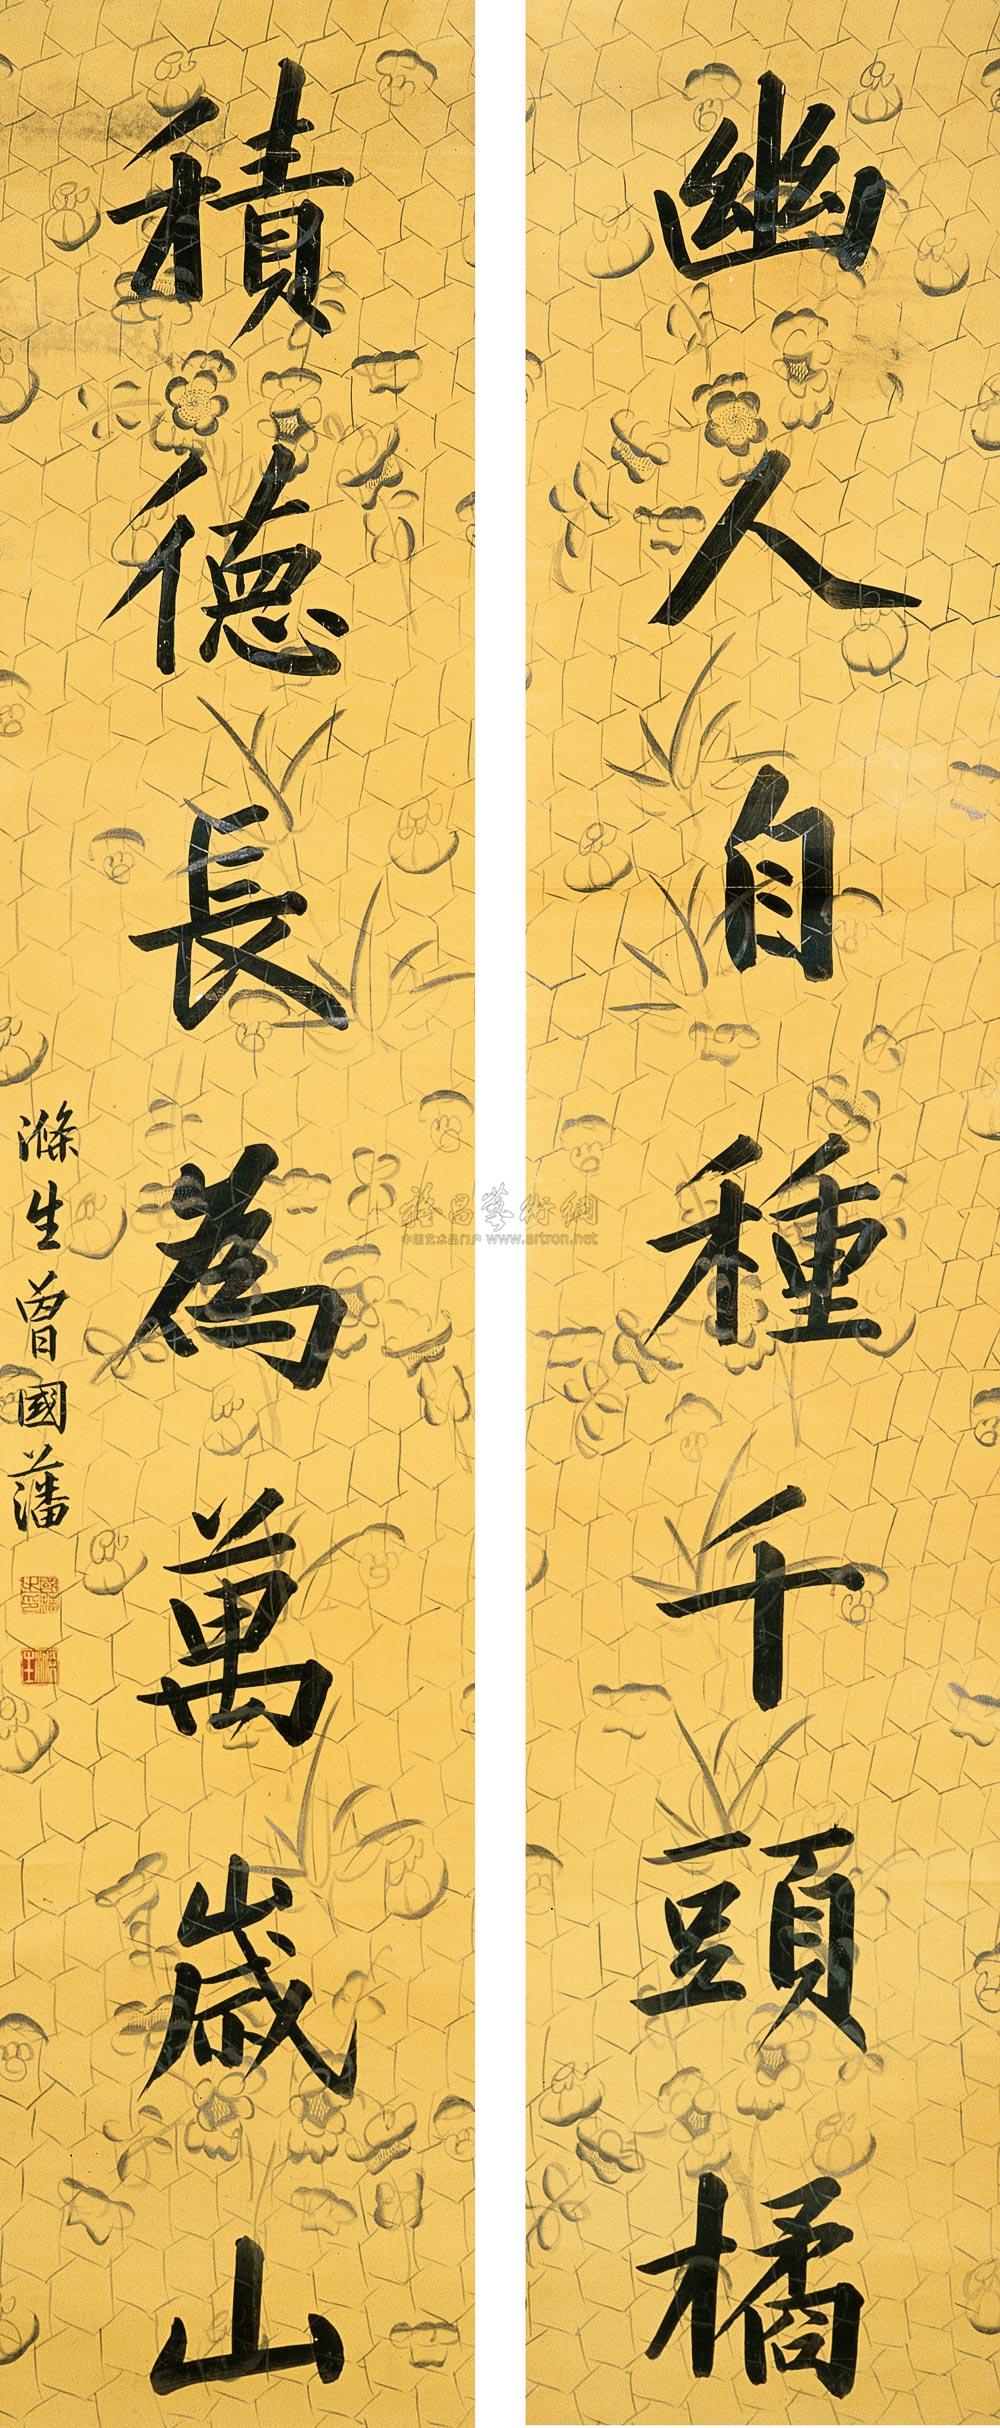 幽人自種千頭橘
積德長為萬歲山
滌生曾國藩
雅昌藝術網
中国艺术品门户 www.artron.net